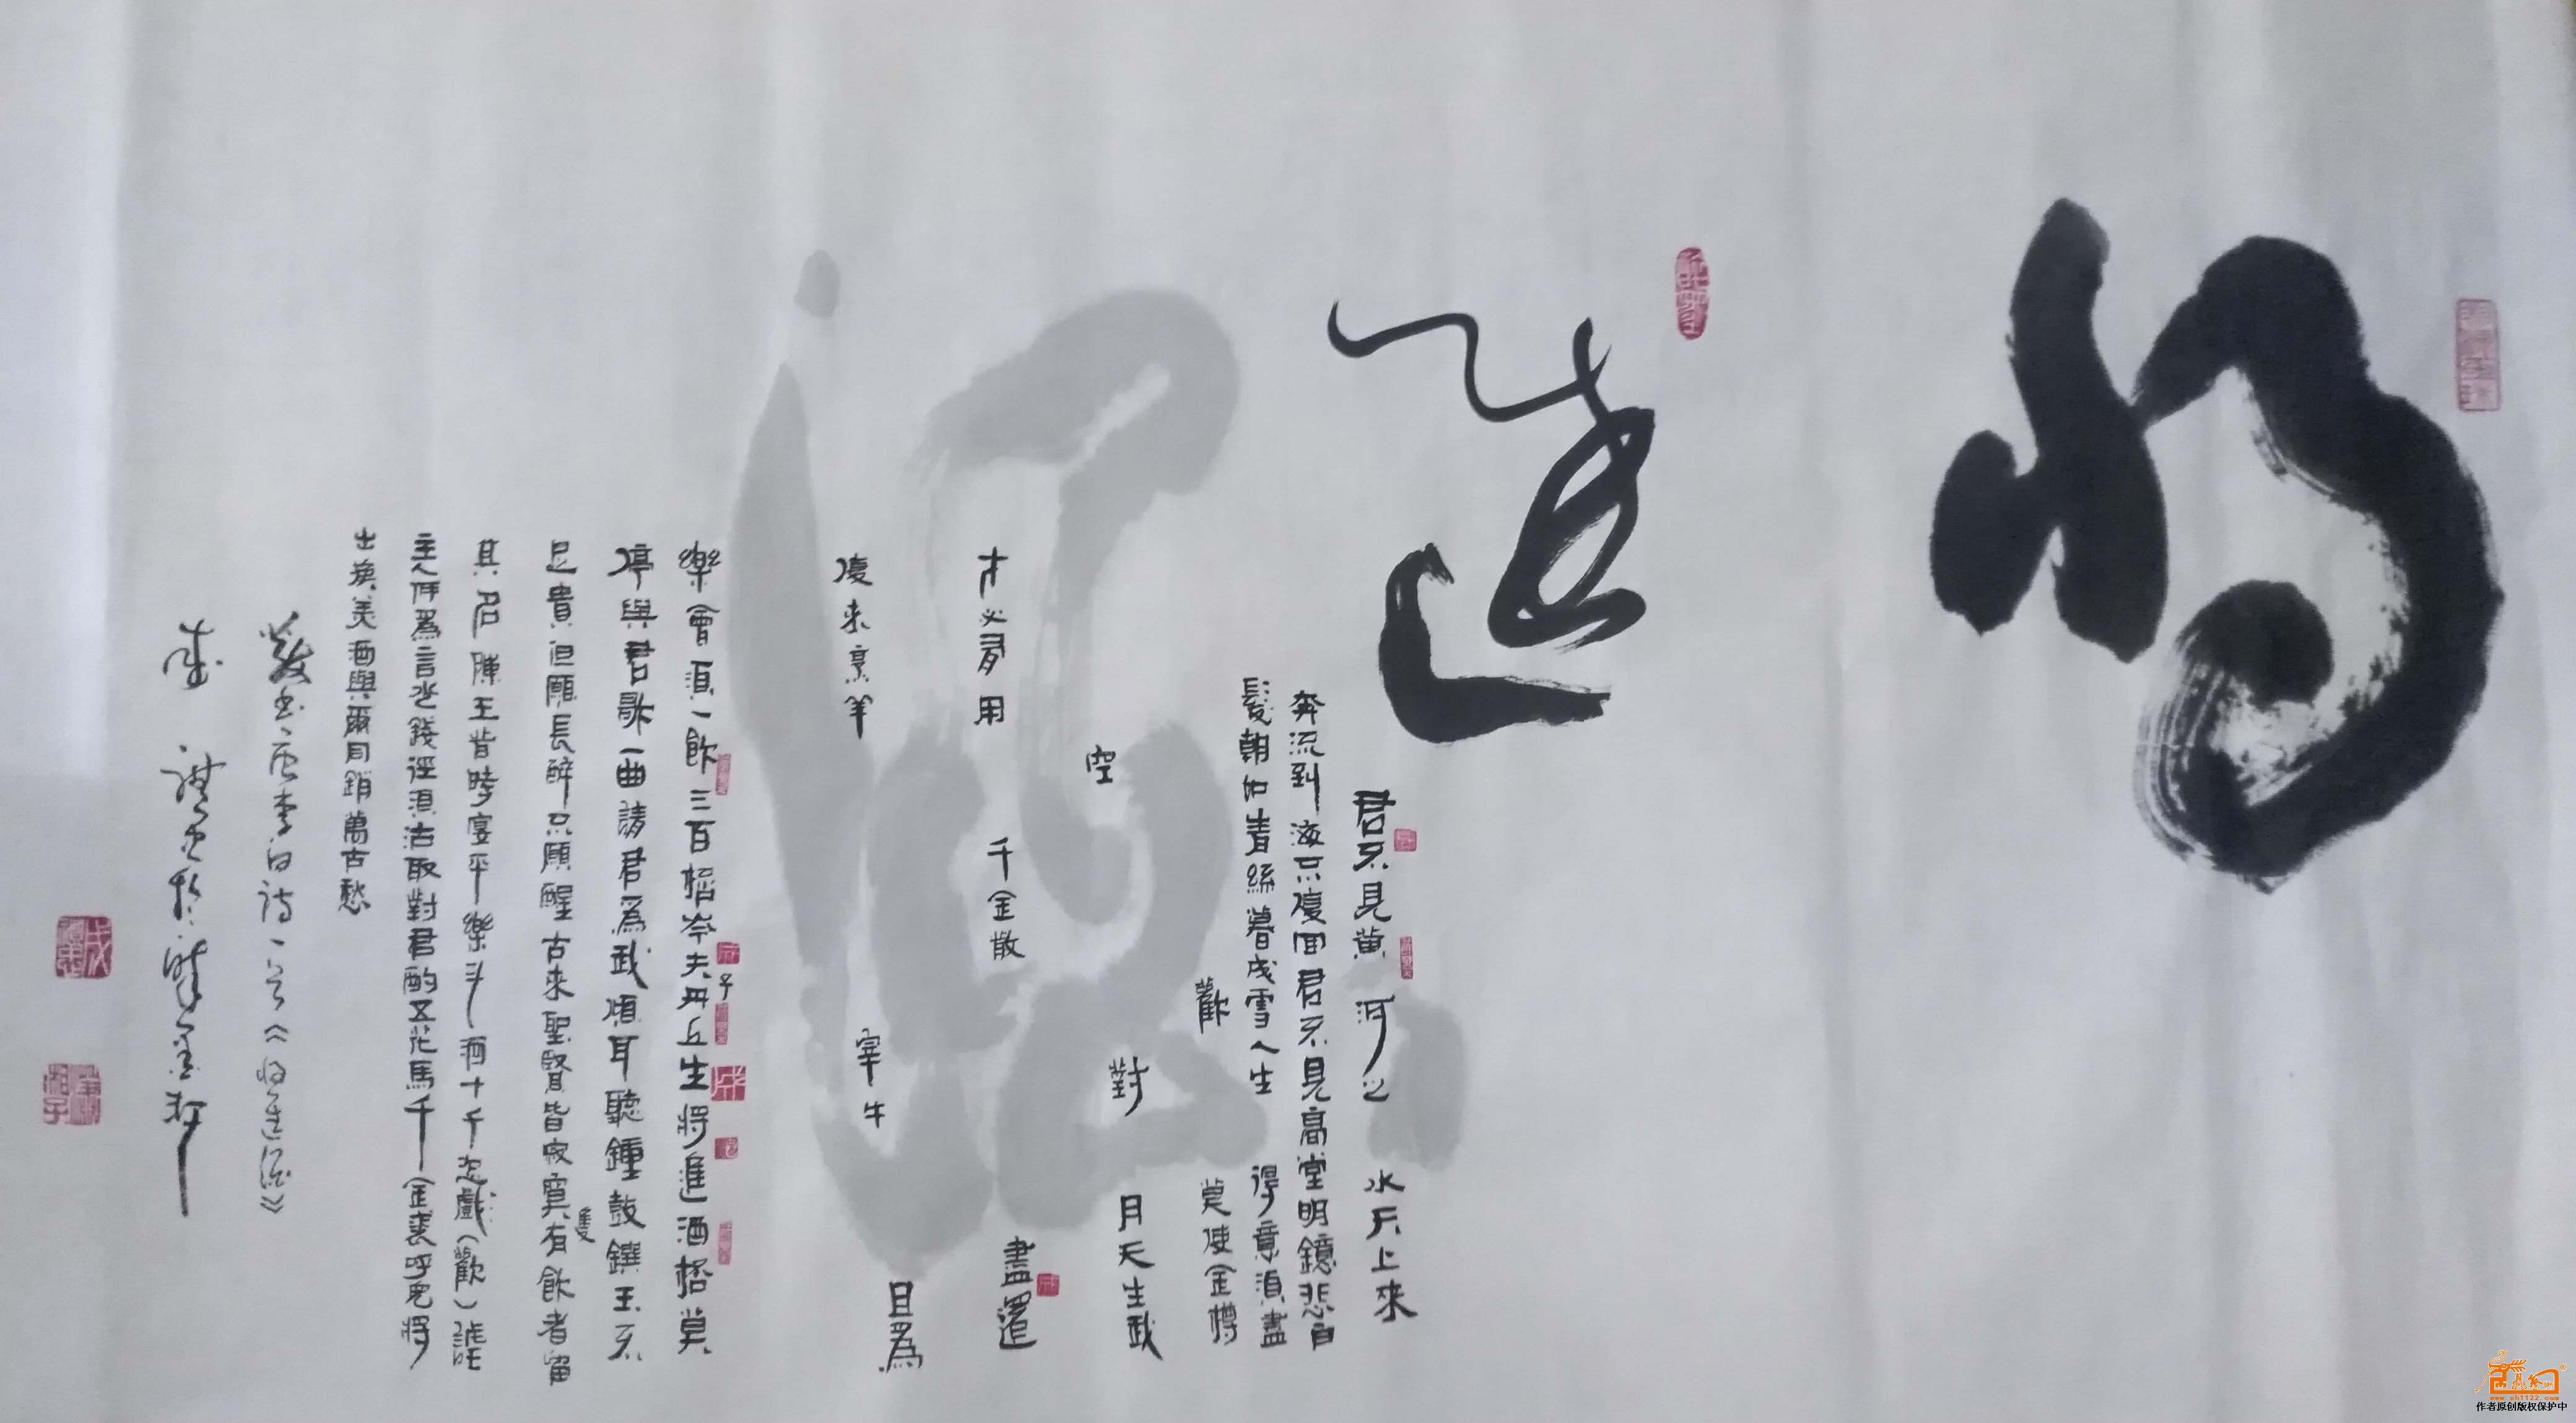 将
進
酒
君不見黄河之水天上來
奔流到海不復回君不見高堂明鏡悲白
髮朝如青絲暮成雪人生得意須盡
歡莫使金樽
空對月天生我
才必有用千金散盡還
復來烹羊宰牛且爲
樂會須一飲三百杯岑夫子丹丘生將進酒杯莫
停與君歌一曲請君爲我傾耳聽鐘鼓饌玉不
足貴但願長醉不願醒古來聖賢皆寂寞惟有飲者留
其名陳王昔時宴平樂斗酒十千恣戲（歡）謔
主人何爲言少錢徑須沽取對君酌五花馬千金裘呼兒將
出換美酒與爾同銷萬古愁
唐李白诗一首《将进酒》
www.sh1122.com
作者原创版权保护中